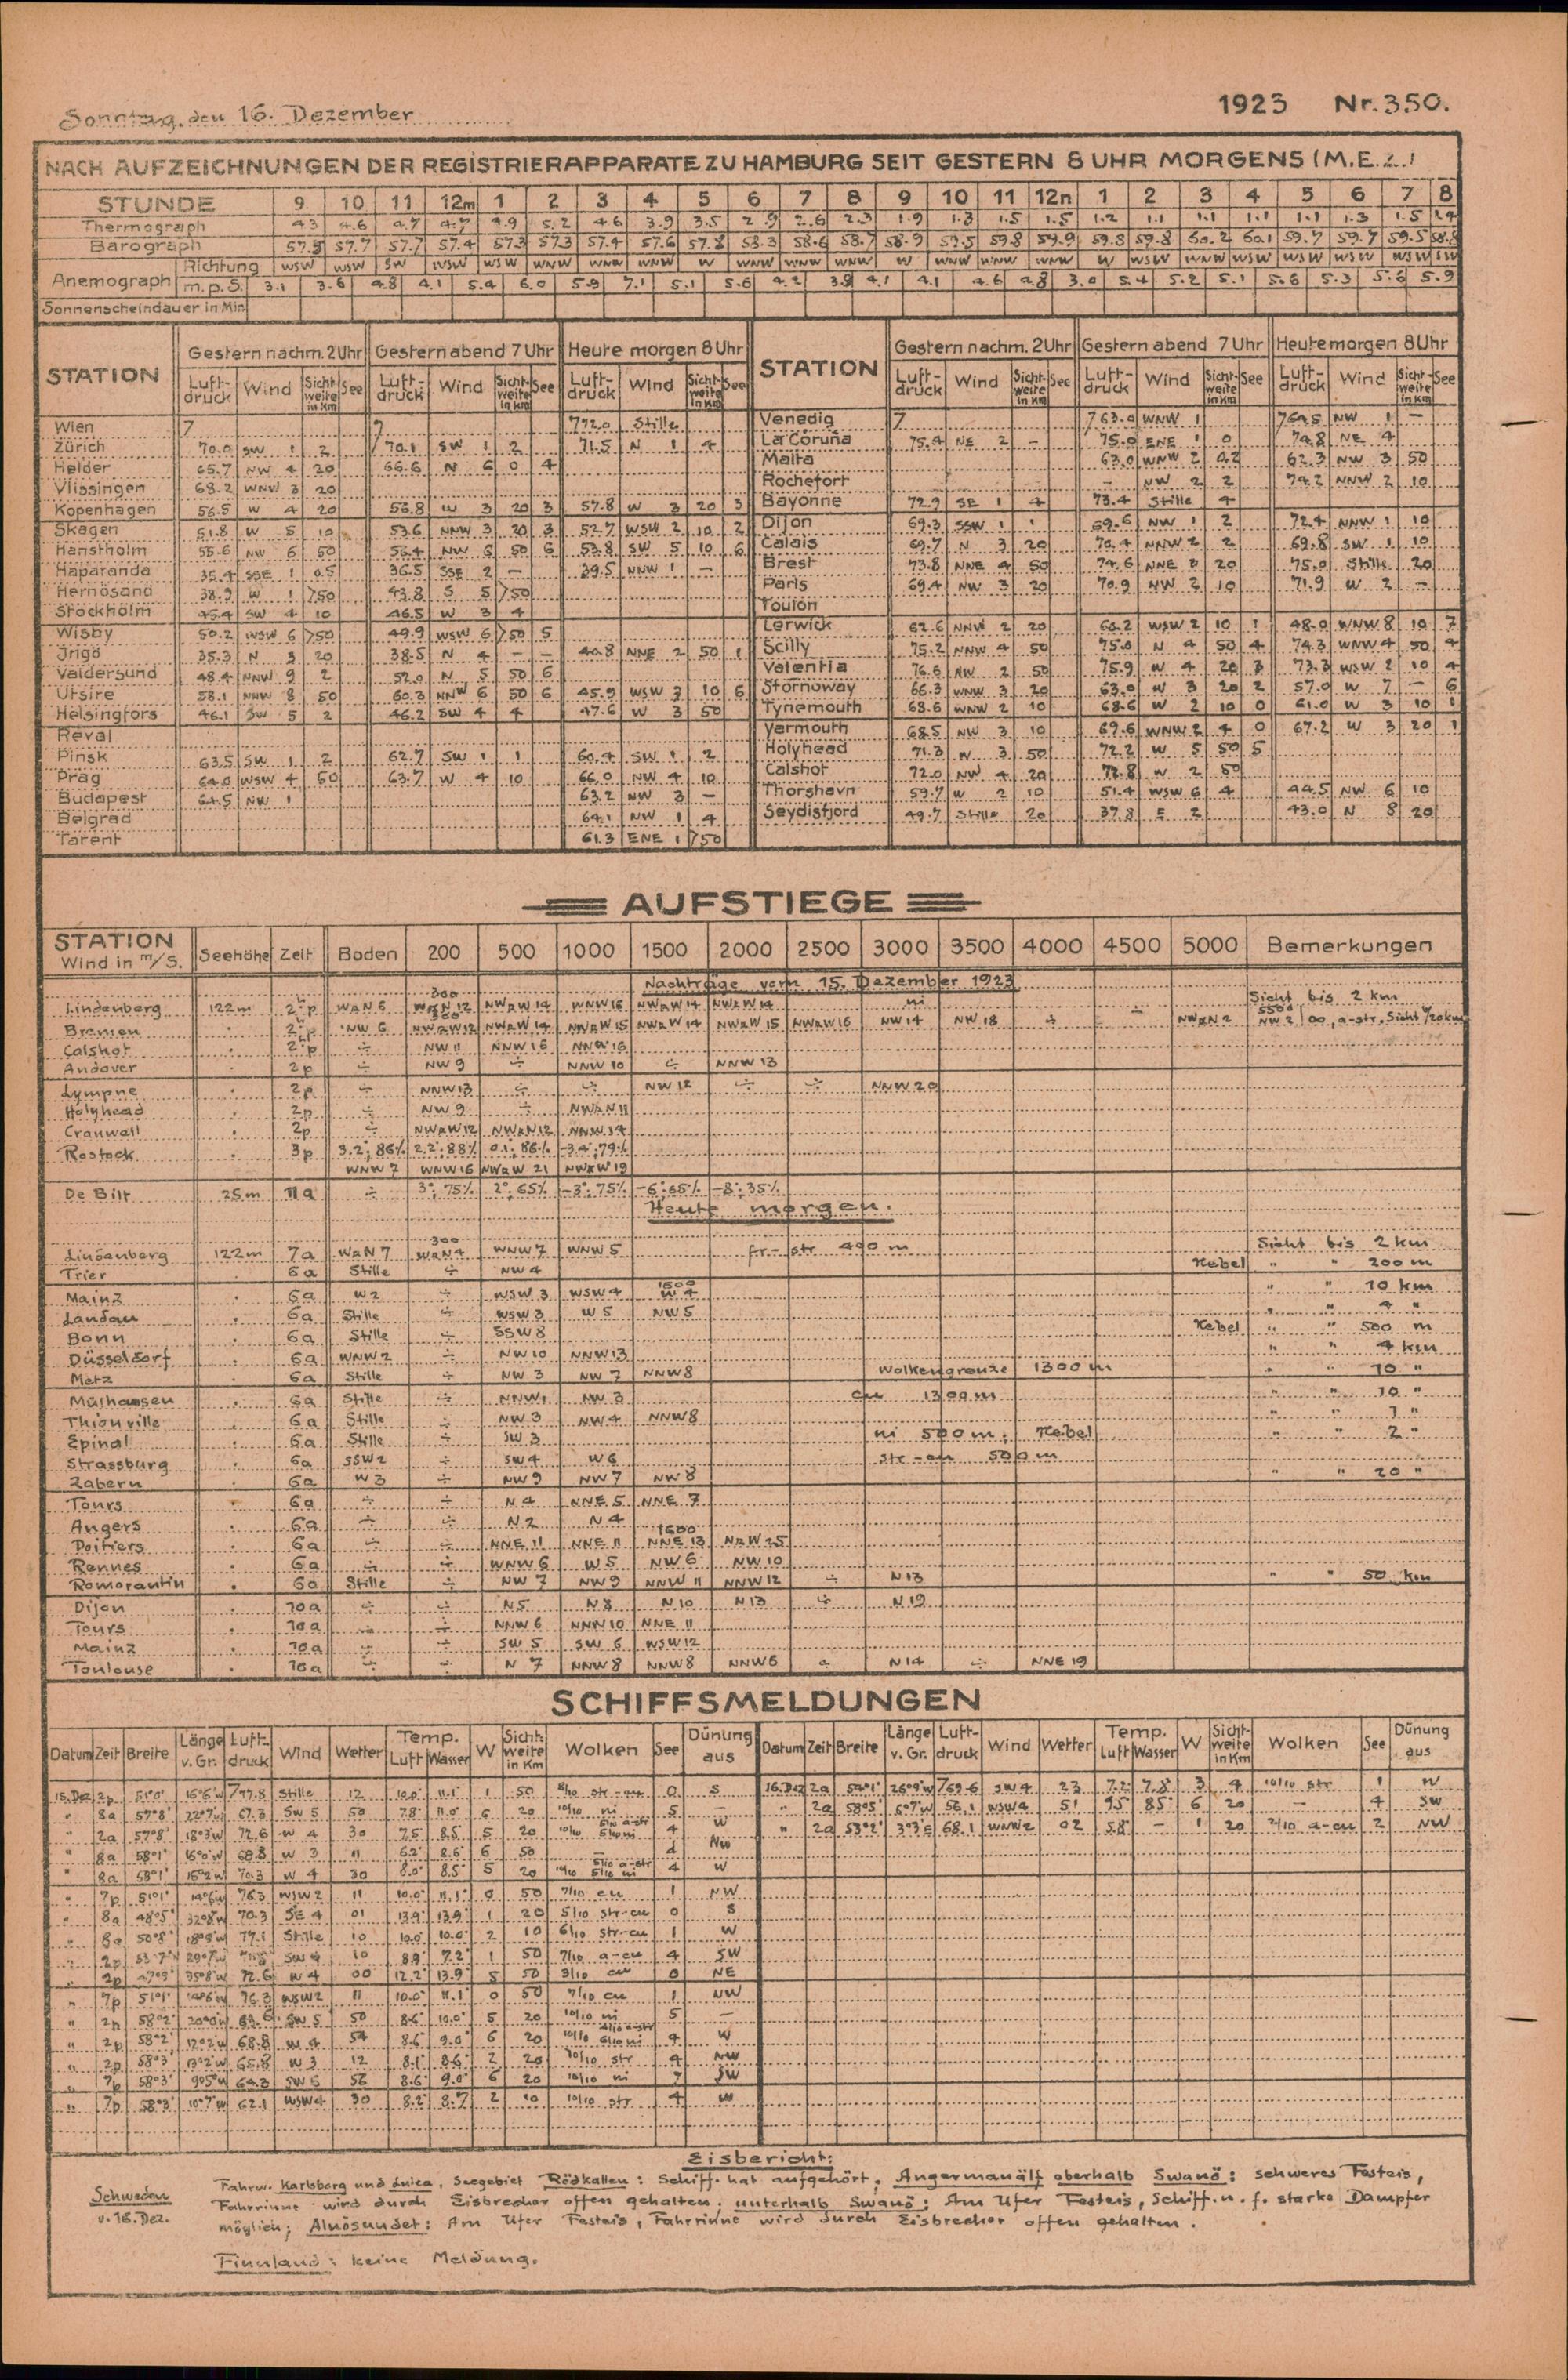 Sonntag, den 16. Dezember 1923 Nr. 350.
NACH AUFZEICHNUNGEN DER REGISTRIERAPPARATE ZU HAMBURG SEIT GESTERN 8 UHR MORGENS (M.E.Z.)
STUNDE 9 10 11 12m 1 2 3 4 5 6 7 8 9 10 11 12n 1 2 3 4 5 6 7 8
Thermograph 4.3 4.6 4.7 4.7 4.9 5.2 4.6 3.9 3.5 2.9 2.6 2.3 1.9 1.3 1.5 1.5 1.2 1.1 1.1 1.1 1.1 1.3 1.5 1.4
Barograph 57.8 57.7 57.7 57.4 57.3 57.3 57.4 57.6 57.8 58.3 58.6 58.7 58.9 59.5 59.8 59.9 59.8 59.8 60.2 60.1 59.7 59.7 59.5 58.8
Anemograph Richtung WSW WSW SW WSW WSW WNW WNW WNW W WNW WNW WNW W WNW WNW WNW W WSW WNW WSW WSW WSW WSW SW
m.p.S. 3.1 3.6 4.8 4.1 5.4 6.0 5.9 7.1 5.1 5.6 4.2 3.9 4.1 4.1 4.6 4.8 3.0 5.4 5.2 5.1 5.6 5.3 5.6 5.9
Sonnenscheindauer in Min
STATION Gestern nachm. 2 Uhr Gestern abend 7 Uhr Heute morgen 8 Uhr STATION Gestern nachm. 2 Uhr Gestern abend 7 Uhr Heute morgen 8 Uhr
Luft-druck Wind Sicht-weite in Km See Luft-druck Wind Sicht-weite in Km See Luft-druck Wind Sicht-weite in Km See Luft-druck Wind Sicht-weite in Km See Luft-druck Wind Sicht-weite in Km See Luft-druck Wind Sicht-weite in Km See
Wien 7 7 772.0 Stille Venedig 7 763.0 WNW 1 764.5 NW 1 —
Zürich 70.0 SW 1 2 70.1 SW 1 2 71.5 N 1 4 La Coruña 75.4 NE 2 – 75.0 ENE 1 0 74.8 NE 4
Helder 65.7 NW 4 20 66.6 N 6 0 4 Malta 63.0 WNW 2 42 62.3 NW 3 50
Vlissingen 68.2 WNW 3 20 Rochefort – NW 2 2 74.2 NNW 2 10
Kopenhagen 56.5 W 4 20 56.8 W 3 20 3 57.8 W 3 20 3 Bayonne 72.9 SE 1 4 73.4 Stille 4
Skagen 51.8 W 5 10 53.6 NNW 3 20 3 52.7 WSW 2 10 2 Dijon 69.3 SSW 1 1 69.6 NW 1 2 72.4 NNW 1 10
Hanstholm 55.6 NW 6 50 56.4 NW 5 50 6 53.8 SW 5 10 6 Calais 69.7 N 3 20 70.4 NNW 2 2 69.8 SW 1 10
Haparanda 35.4 SSE 1 0.5 36.5 SSE 2 — 39.5 NNW 1 — Brest 73.8 NNE 4 50 74.6 NNE 20 75.0 Stille 20
Hernösand 38.9 W 1 >50 43.8 S 5 >50 Paris 69.4 NW 3 20 70.9 NW 2 10 71.9 W 2 –
Stockholm 45.4 SW 4 10 46.5 W 3 4 Toulon
Wisby 50.2 WSW 6 >50 49.9 WSW 6 >50 5 Lerwick 62.6 NNW 2 20 63.2 WSW 2 10 1 48.0 WNW 8 10 7
Ingö 35.3 N 3 20 38.5 N 4 – – 40.8 NNE 2 50 1 Scilly 75.2 NNW 4 50 75.0 N 4 50 4 74.3 WNW 4 50 4
Valdersund 48.4 NNW 9 2 52.0 N 5 50 6 Valentia 76.6 NW 2 50 75.9 W 4 20 3 73.3 WSW 2 10 4
Utsire 58.1 NNW 8 50 60.3 NNW 6 50 6 45.9 WSW 7 10 6 Stornoway 66.3 WNW 3 20 63.0 W 3 20 2 57.0 W 7 – 6
Helsingfors 46.1 SW 5 2 46.2 SW 4 4 47.6 W 3 50 Tynemouth 68.6 WNW 2 10 68.6 W 2 10 0 61.0 W 3 10 1
Reval Yarmouth 68.5 NW 3 10 69.6 WNW 2 4 0 67.2 W 3 20 1
Pinsk 63.5 SW 1 2 62.7 SW 1 1 60.4 SW 1 2 Holyhead 71.3 W 3 50 72.2 W 5 50 5
Prag 64.0 WSW 4 50 63.7 W 4 10 66.0 NW 4 10 Calshot 72.0 NW 4 20 72.8 W 2 50
Budapest 64.5 NW 1 63.2 NW 3 – Thorshavn 59.7 W 2 10 51.4 WSW 6 4 44.5 NW 6 10
Belgrad 64.1 NW 1 4 Seydisfjord 49.7 Stille 20 37.8 E 2 43.0 N 8 20
Tarent 61.3 ENE 1 >50
AUFSTIEGE
STATION Wind in m/S. Seehöhe Zeit Boden 200 500 1000 1500 2000 2500 3000 3500 4000 4500 5000 Bemerkungen
Nachträge vom 15. Dezember 1923
Lindenberg 122m 2p WzN 6 300 12 NWzW 14 WNW 16 NWzW 14 NWzW 14 ni Sicht bis 2 km
Bremen . 2p NW 6 NWzW 12 NWzW 14 NWzW 15 NWzW 14 NWzW 15 NWzW 16 NW 14 NW 18 ÷ ÷ NWzN 2 5500 NW 2 a-str. Sicht 20km
Calshot . 2p ÷ NW 11 NNW 16 NNW 16
Andover 2p ÷ NW 9 NNW 10 ÷ NNW 13
Lympne 2p ÷ NNW 13 ÷ ÷ NW 12 ÷ ÷ NNW 20
Holyhead . 2p ÷ NW 9 ÷ NWzN 11
Cranwell . 2p ÷ NWzW 12 NWzN 12 NNW 14
Rostock . 3p 3.2°; 86% 2.2°; 88% 0.1°; 86% -3.4°; 79%
WNW 7 WNW 16 NWzW 21 NWzW 19
De Bilt 25m 11a ÷ 3°; 75% 2°; 65% -3°; 75% -6°; 65% -8°; 35%
Heute morgen.
Lindenberg 122m 7a WzN 7 300 WzN 4 WNW 7 WNW 5 fr-str 400 m Sicht bis 2 km
Trier 6a Stille ÷ NW 4 Nebel " " 200 m
Mainz . 6a W 2 ÷ WSW 3 WSW 4 1600 W 4 " " 10 km
Landau . 6a Stille ÷ WSW 3 W 5 NW 5 " " 4 "
Bonn . 6a Stille ÷ SSW 8 Nebel " " 500 m
Düsseldorf . 6a WNW 2 ÷ NW 10 NNW 13 " " 4 km
Metz . 6a Stille ÷ NW 3 NW 7 NNW 8 Wolkengrenze 1300 m " " 10 "
Mülhausen . 6a Stille ÷ NNW 1 NW 3 cu 1300 m " " 10 "
Thionville . 6a Stille ÷ NW 3 NW 4 NNW 8 " " 1 "
Epinal . 6a Stille ÷ SW 3 ni 500 m; Nebel " " 2 "
Strassburg . 6a SSW 2 ÷ SW 4 W 6 str-cu 500 m
Zabern . 6a W 3 ÷ NW 9 NW 7 NW 8 " " 20 "
Tours 6a ÷ ÷ N 4 NNE 5 NNE 7
Angers . 6a ÷ ÷ N 2 N 4
Poitiers . 6a ÷ ÷ NNE 11 NNE 11 1600 NNE 13 NzW 25
Rennes . 6a ÷ ÷ WNW 6 W 5 NW 6 NW 10
Romorantin . 6a Stille ÷ NW 7 NW 9 NNW 11 NNW 12 ÷ N 13 " " 50 km
Dijon . 10a ÷ ÷ N 5 N 8 N 10 N 13 ÷ N 19
Tours . 10a ÷ ÷ NNW 6 NNW 10 NNE 11
Mainz . 10a ÷ ÷ SW 5 SW 6 WSW 12
Toulouse . 10a ÷ ÷ N 7 NNW 8 NNW 8 NNW 6 ÷ N 14 ÷ NNE 19
SCHIFFSMELDUNGEN
Datum Zeit Breite Länge v. Gr. Luft-druck Wind Wetter Temp. Luft Wasser W Sicht-weite in Km Wolken See Dünung aus Datum Zeit Breite Länge v. Gr. Luft-druck Wind Wetter Temp. Luft Wasser W Sicht-weite in Km Wolken See Dünung aus
15. Dez 2p 51°0' 16°6'W 777.8 Stille 12 10.0° 11.1° 1 50 8/10 str-cu 0 S 16. Dez 2a 54°1' 26°9'W 769.6 SW 4 23 7.2° 7.8° 3 4 10/10 str 1 W
" 8a 57°8' 22°7'W 67.3 SW 5 50 7.8° 11.0° 6 20 10/10 ni 5 — " 2a 58°5' 6°7'W 56.1 WSW 4 51 9.5° 8.5° 6 20 — 4 SW
" 2a 57°8' 18°3'W 72.6 W 4 30 7.5° 8.5° 5 20 10/10 5/10 a-str 5/10 ni 4 W " 2a 53°2' 3°3'E 68.1 WNW 2 02 5.8° — 1 20 2/10 a-cu 2 NW
" 8a 58°1' 16°0'W 68.8 W 3 11 6.2° 8.6° 6 50 – NW
" 8a 58°1' 15°2'W 70.3 W 4 30 8.0° 8.5° 5 20 10/10 5/10 a-str 5/10 ni 4 W
" 7p 51°1' 14°6'W 76.3 WSW 2 11 10.0° 11.1° 0 50 7/10 cu 1 NW
" 8a 48°5' 32°8'W 70.3 SE 4 01 13.9° 13.9° 1 20 5/10 str-cu 0 S
" 8a 50°8' 18°9'W 77.1 Stille 10 10.0° 10.0° 2 10 6/10 str-cu 1 W
" 2p 53°7' 29°7'W SW 4 10 8.9° 7.2° 1 50 7/10 a-cu 4 SW
" 2p 47°9' 35°8'W 72.6 W 4 00 12.2° 13.9° 5 50 3/10 cu 0 NE
" 7p 51°1' 14°6'W 76.3 WSW 2 11 10.0° 11.1° 0 50 7/10 cu 1 NW
" 2p 58°2' 20°0'W 63.6 SW 5 50 8.6° 10.0° 5 20 10/10 ni 5 —
" 2p 58°2' 12°2'W 68.8 W 4 54 8.6° 9.0° 6 20 10/10 4/10 a-str 6/10 ni 4 W
" 2p 58°3' 13°2'W 65.8 W 3 12 8.1° 8.6° 2 20 10/10 str 4 NW
" 7p 58°3' 9°5'W 64.3 SW 5 56 8.6° 9.0° 6 20 10/10 ni 7 SW
" 7p 58°3' 10°7'W 62.1 WSW 4 30 8.2° 8.7° 2 10 10/10 str 4 W
Eisbericht:
Schweden v. 16. Dez.
Fahrw. Karlsborg und Lulea, Seegebiet Rödkallen: Schiff. hat aufgehört; Angermanälf oberhalb Swanö: schweres Festeis,
Fahrrinne wird durch Eisbrecher offen gehalten; unterhalb Swanö: Am Ufer Festeis, Schiff. n. f. starke Dampfer
möglich; Alnösundet: Am Ufer Festeis, Fahrrinne wird durch Eisbrecher offen gehalten.
Finnland: keine Meldung.